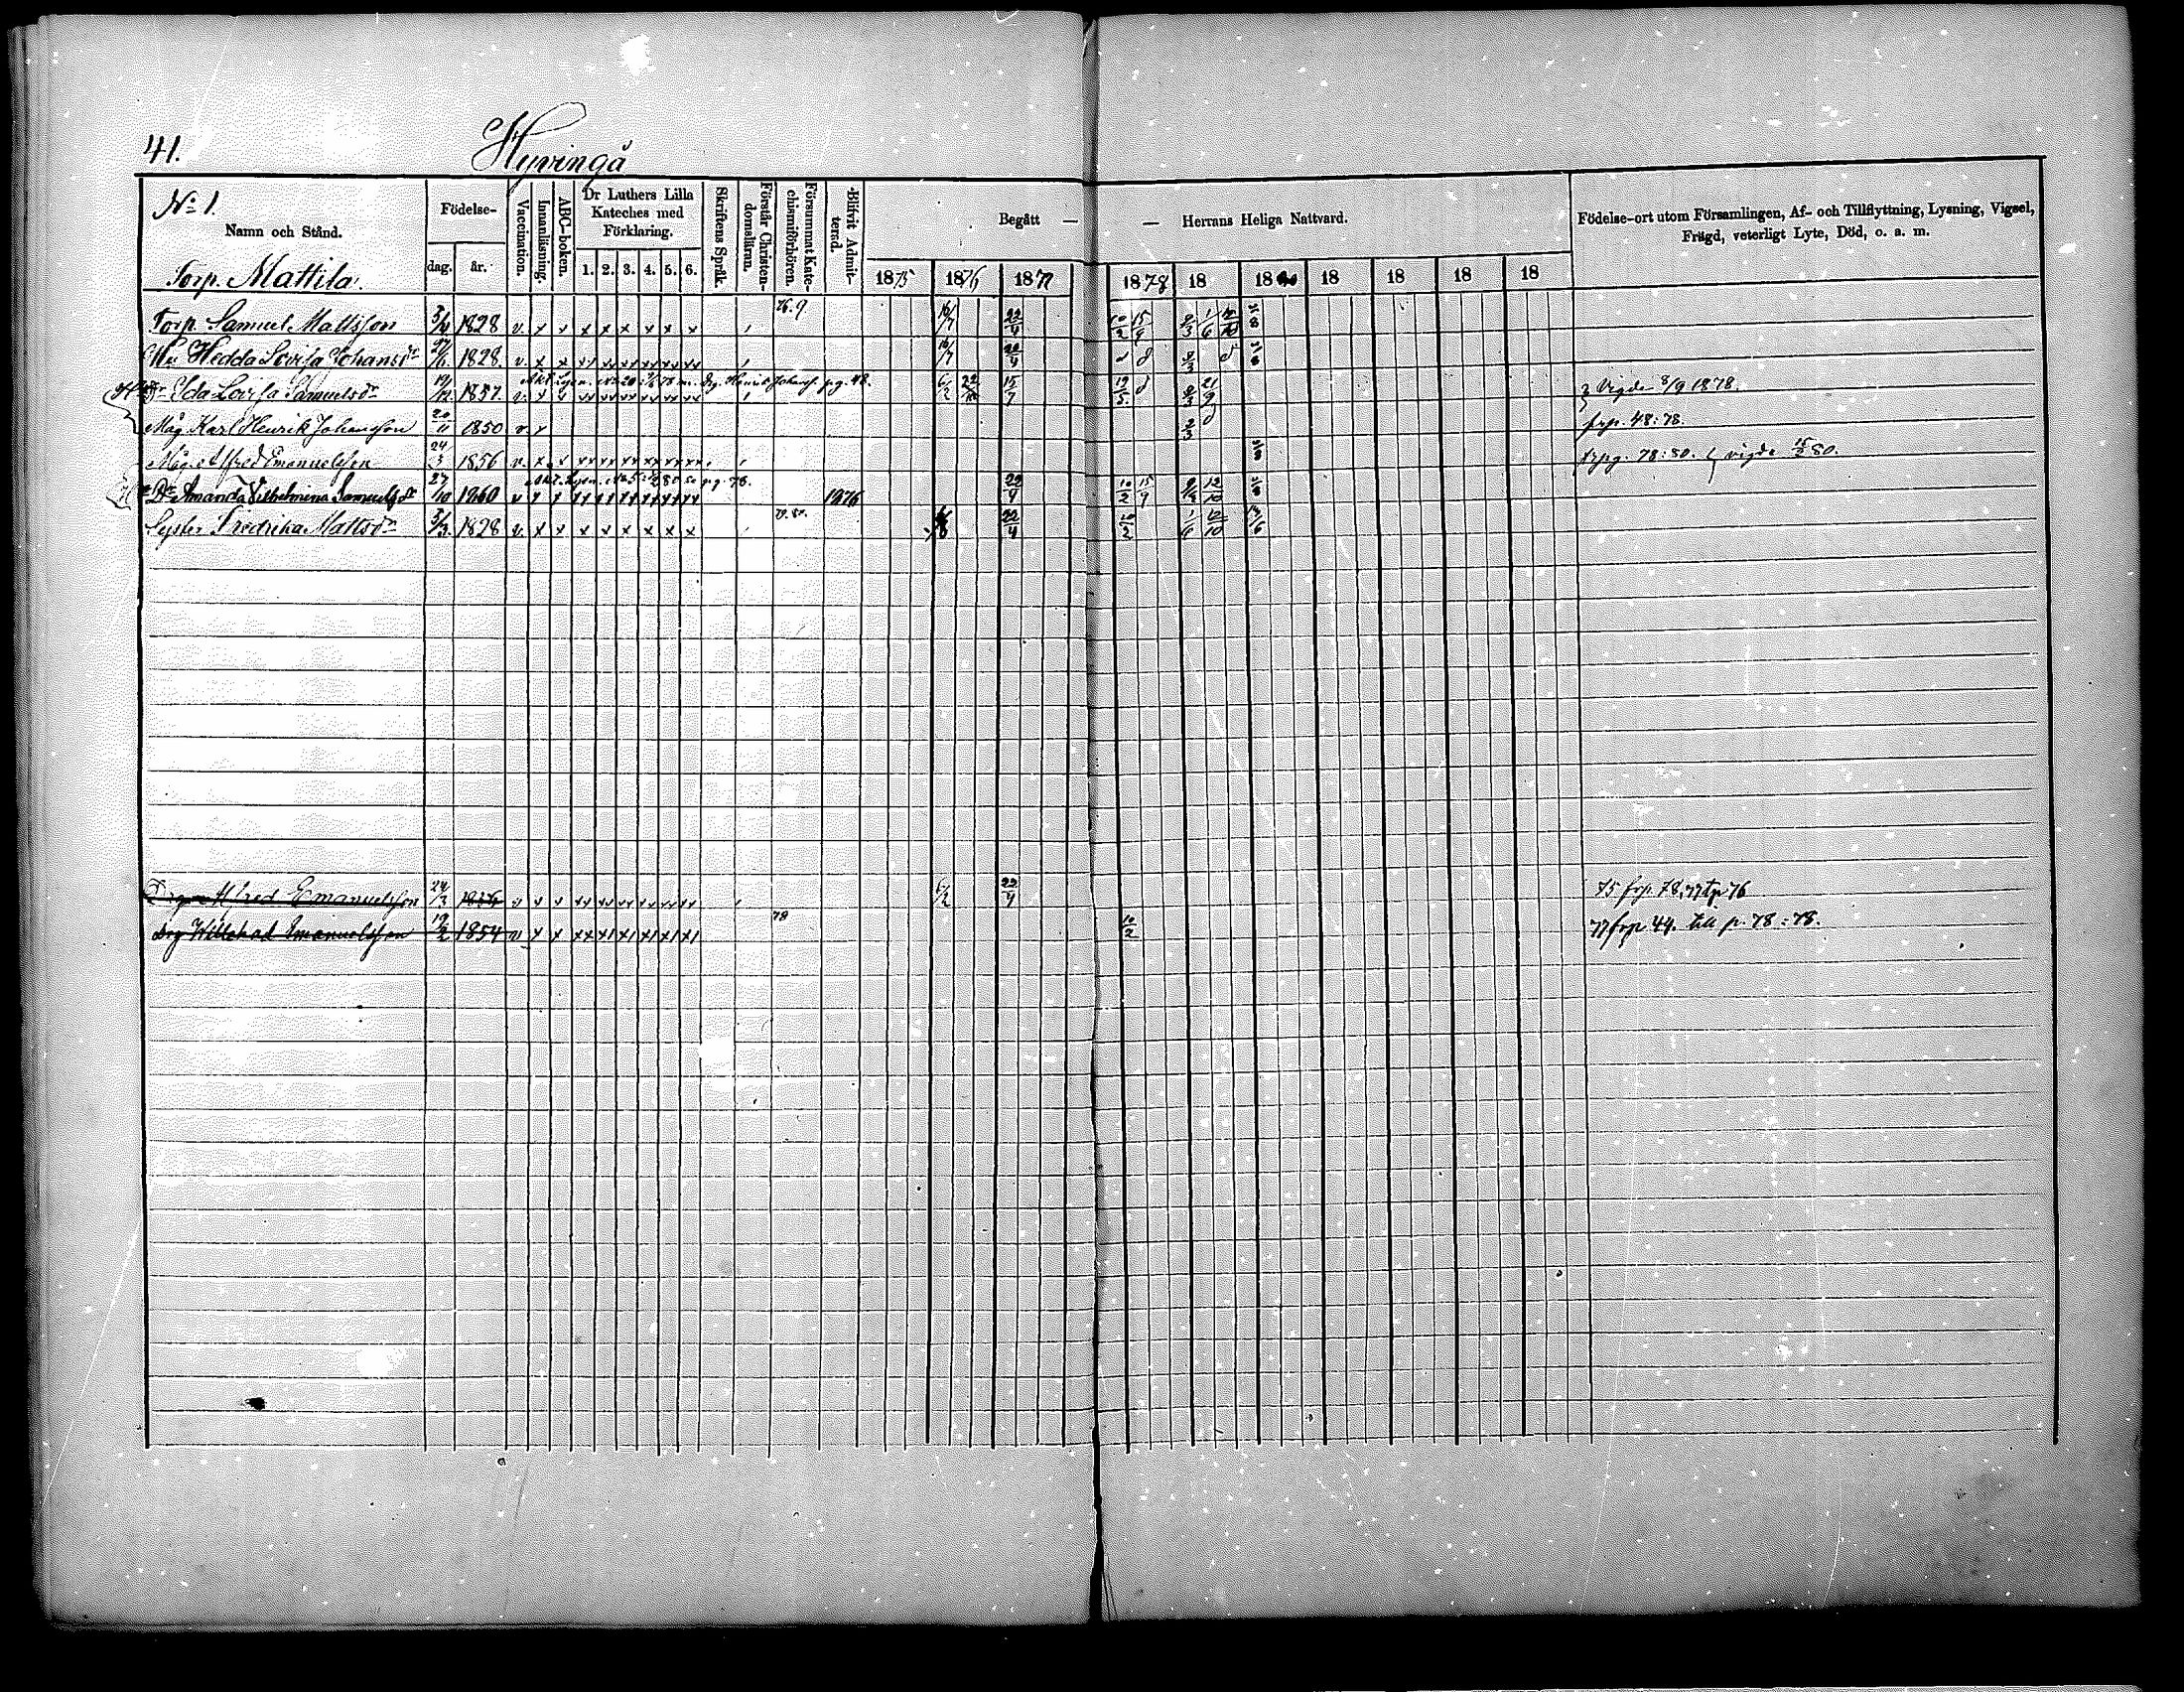 41.
Hyvingå
No 1.
Namn och Stånd.
Torp. Mattila.
Födelse-
dag. år.
Vaccination.
Innanläsning.
ABC-boken.
Dr Luthers Lilla
Kateches med
Förklaring.
1. 2. 3. 4. 5. 6.
Skriftens Språk.
Förstår Christen-
domsläran.
Försummat Kate-
chismiförhören.
Blifvit Admit-
terad.
Begått —
— Herrans Heliga Nattvard.
1875 1876 1877 1878 18 18 18 18 18 18
Födelse-ort utom Församlingen, Af- och Tillflyttning, Lysning, Vigsel,
Frägd, veterligt Lyte, Död, o. a. m.
Torp. Samuel Mattsson 1828 v. x x x x x x x x 76.9 16/7 22/4 10/2 15/9
Hedda Lovisa Johansdr 1828. v. x x xx xx xx xx xx xx 16/7 20/4
Ida Lovisa Samuelsdr 1857 v. x x xx xx xx xx xx xx 6/2 15/7 19/5 21/9 Vigde 8/9 1878.
Måg Karl Henrik Johansson 20/11 1850 v. x frp. 48:78.
Måg Alfred Emanuelsson 24/3 1856 v. x x xx xx xx xx xx xx 78:80. vigde 15/2 80.
Dr Amanda Vilhelmina Samuelsdr 27/10 1860 v x x xx xx xx xx xx xx 1876 22/4 10/2 15/9 12/10
Syster Fredrika Mattsdr 1828 v. x x x x x x x x 22/4 10/2 1/6 12/10
Alfred Emanuelsson 24/3 v x x xx xx xx xx xx xx 6/2 22/4 75 frp. 78, 77 tp 76
Drg Willehad Emanuelsson 19/2 1854 v x x xx x1 x1 x1 x1 x1 78 10/2 77 frp 44. till p. 78:78.